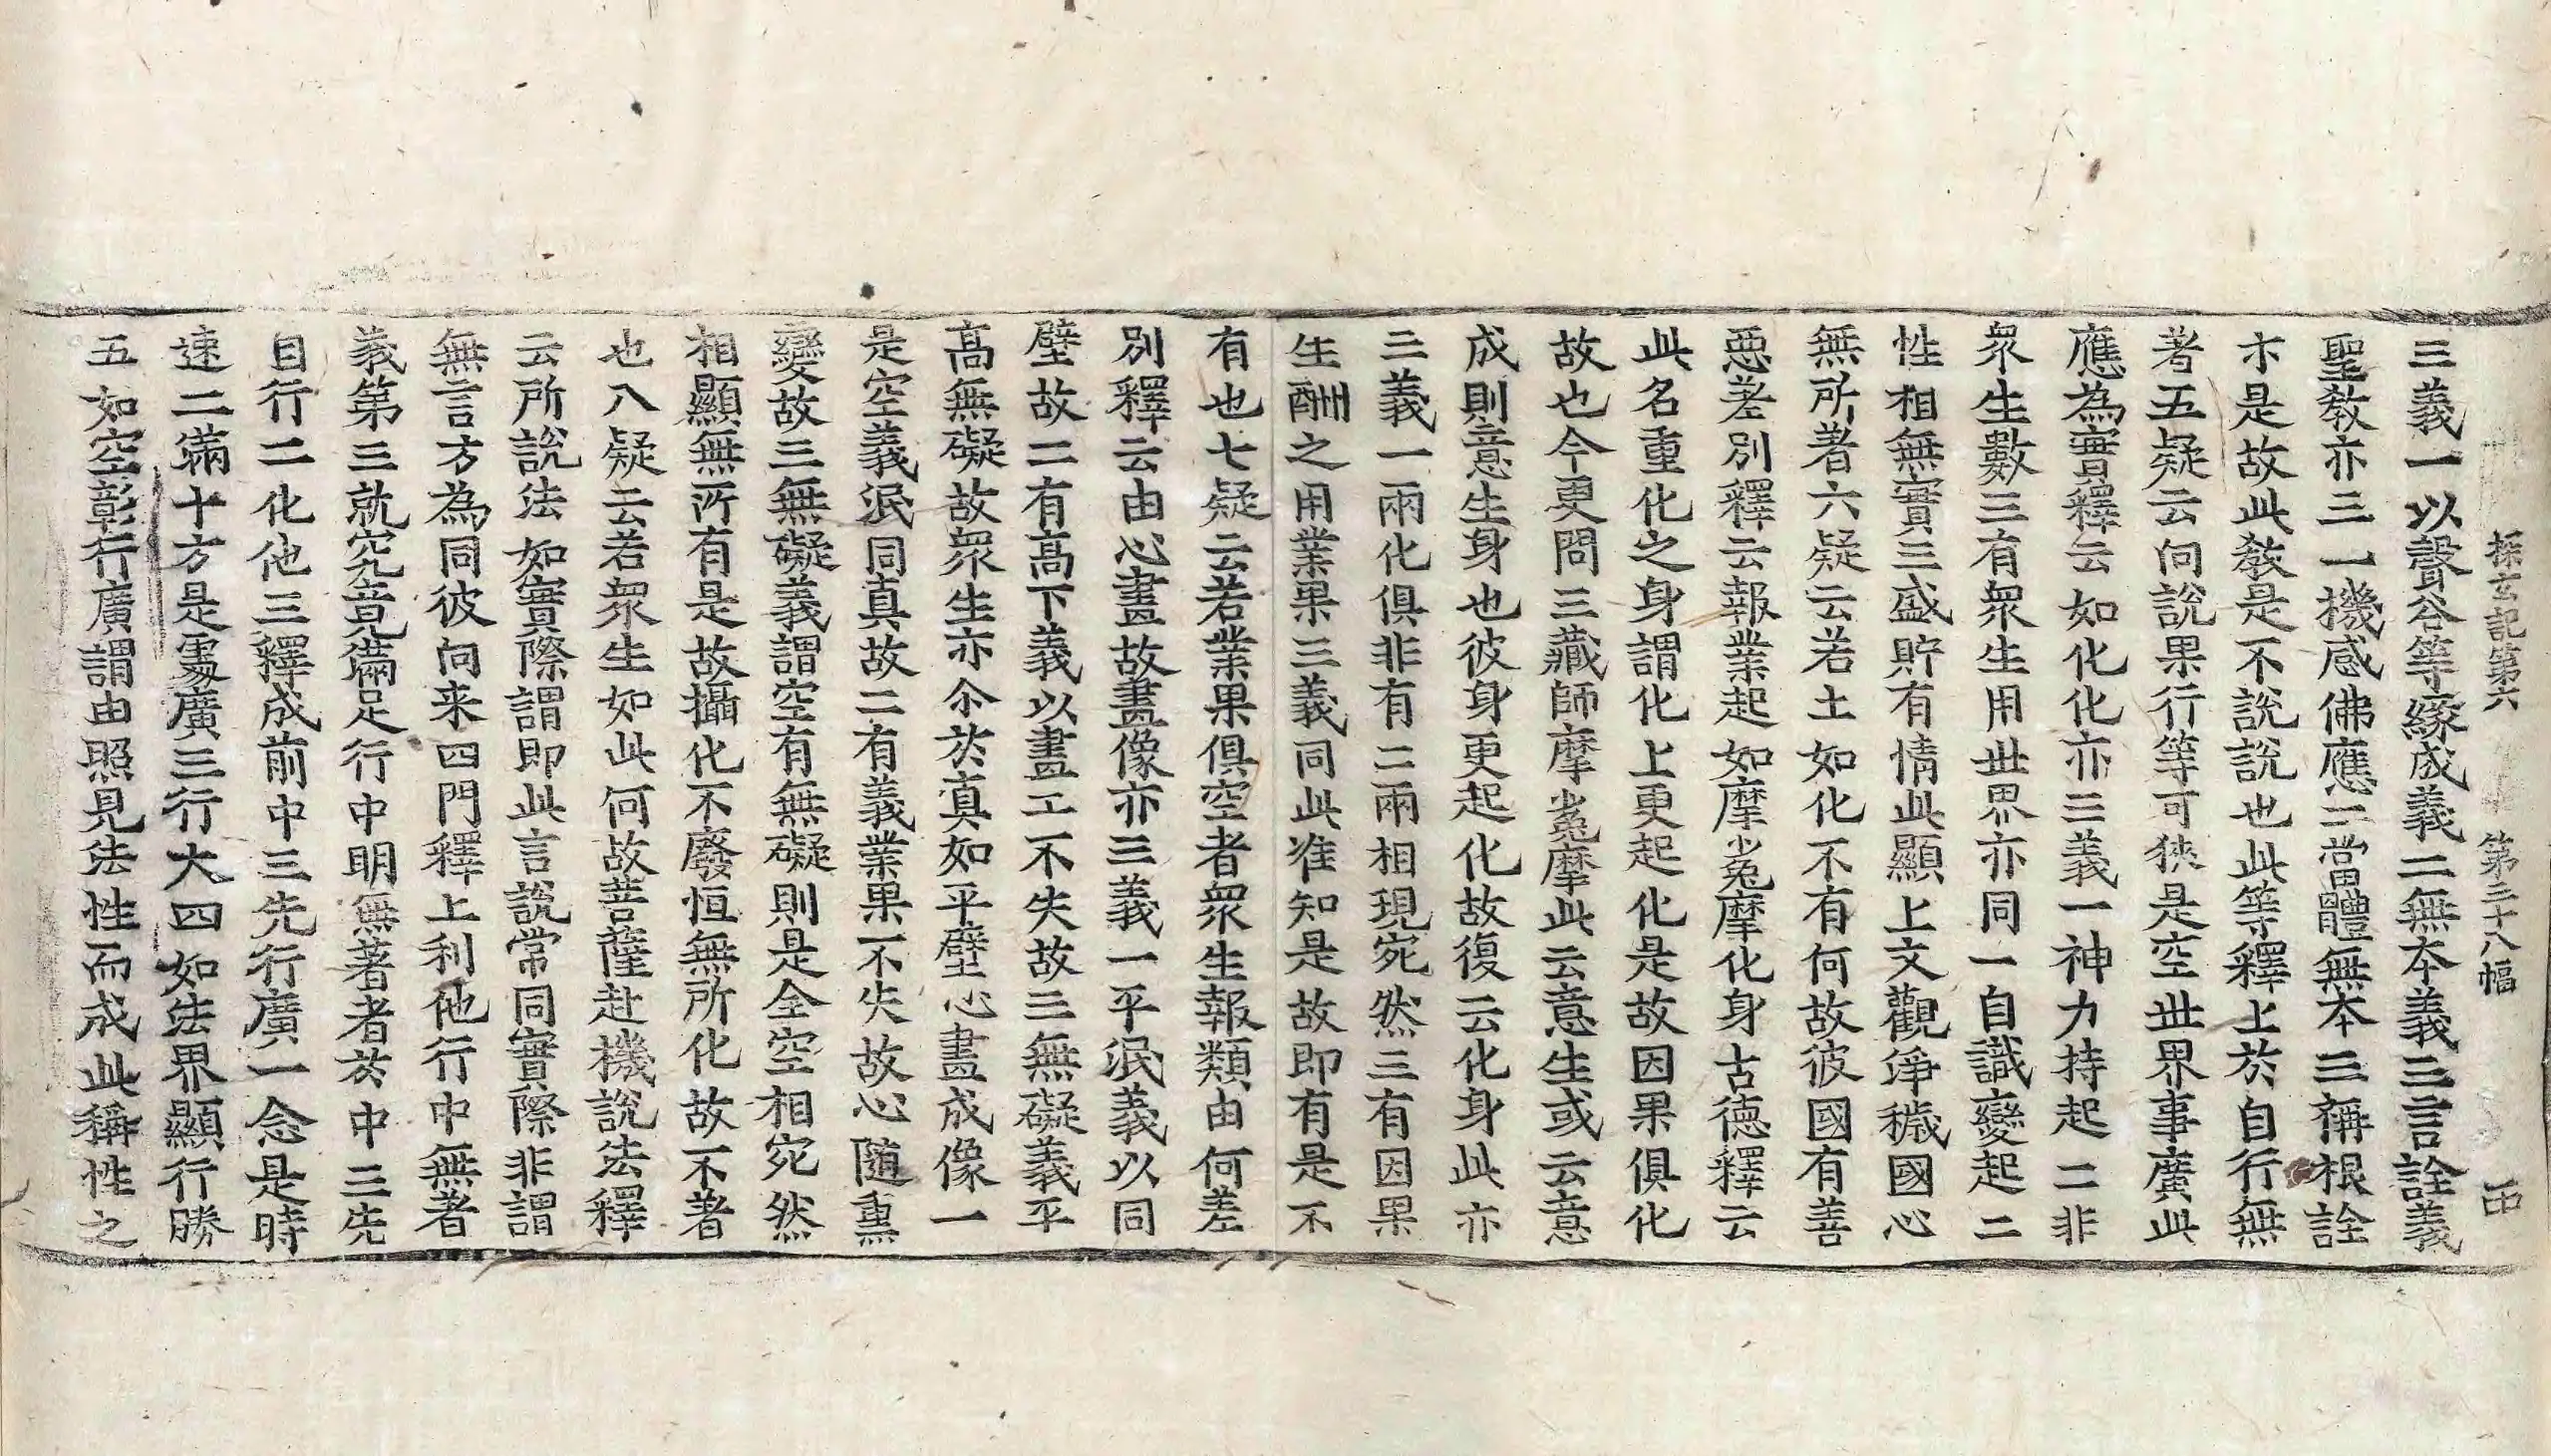 探玄記第六　第三十八幅　申
三義一以聲谷等緣成義二無本義三言詮義
聖教亦三一機感佛應二當體無本三稱根詮
示是故此教是不說說也此等釋上於自行無
著五疑云向說果行等可狹是空世界事廣此
應為實釋云如化化亦三義一神力持起二非
衆生數三有衆生用世界亦同一自識變起二
性相無實三盛貯有情此顯上文觀淨穢國心
無所著六疑云若土如化不有何故彼國有善
惡差別釋云報業起如摩㝹摩化身古德釋云
此名重化之身謂化上更起化是故因果俱化
故也今更問三藏師摩㝹摩此云意生或云意
成則意生身也彼身更起化故復云化身此亦
三義一兩化俱非有二兩相現宛然三有因果
生酬之用業果三義同此准知是故即有是不
有也七疑云若業果俱空者衆生報類由何差
別釋云由心畫故畫像亦三義一平泯義以同
壁故二有高下義以畫工不失故三無礙義平
高無礙故衆生亦尒於真如平壁心畫成像一
是空義泯同真故二有義業果不失故心隨熏
變故三無礙義謂空有無礙則是全空相宛然
相顯無所有是故攝化不廢恒無所化故不著
也八疑云若衆生如此何故菩薩赴機說法釋
云所說法如實際謂即此言說常同實際非謂
無言方為同彼向来四門釋上利他行中無著
義第三就究竟滿足行中明無著者於中三先
自行二化他三釋成前中三先行廣一念是時
速二滿十方是處廣三行大四如法界顯行勝
五如空彰行廣謂由照見法性而成此稱性之